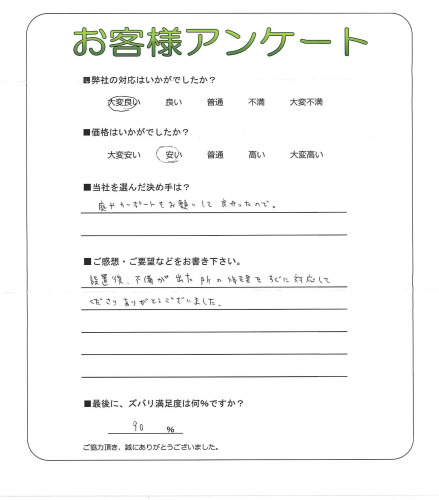 お客様アンケート
■弊社の対応はいかがでしたか?
大変良い 良い 普通 不満 大変不満
■価格はいかがでしたか?
大変安い 安い 普通 高い 大変高い
■当社を選んだ決め手は?
庭やカーポートもお願いして良かったので。
■ご感想・ご要望などをお書き下さい。
設置後、不備が出た所の修理をすぐに対応して
くださりありがとうございました。
■最後に、ズバリ満足度は何%ですか?
90 %
ご協力頂き、誠にありがとうございました。